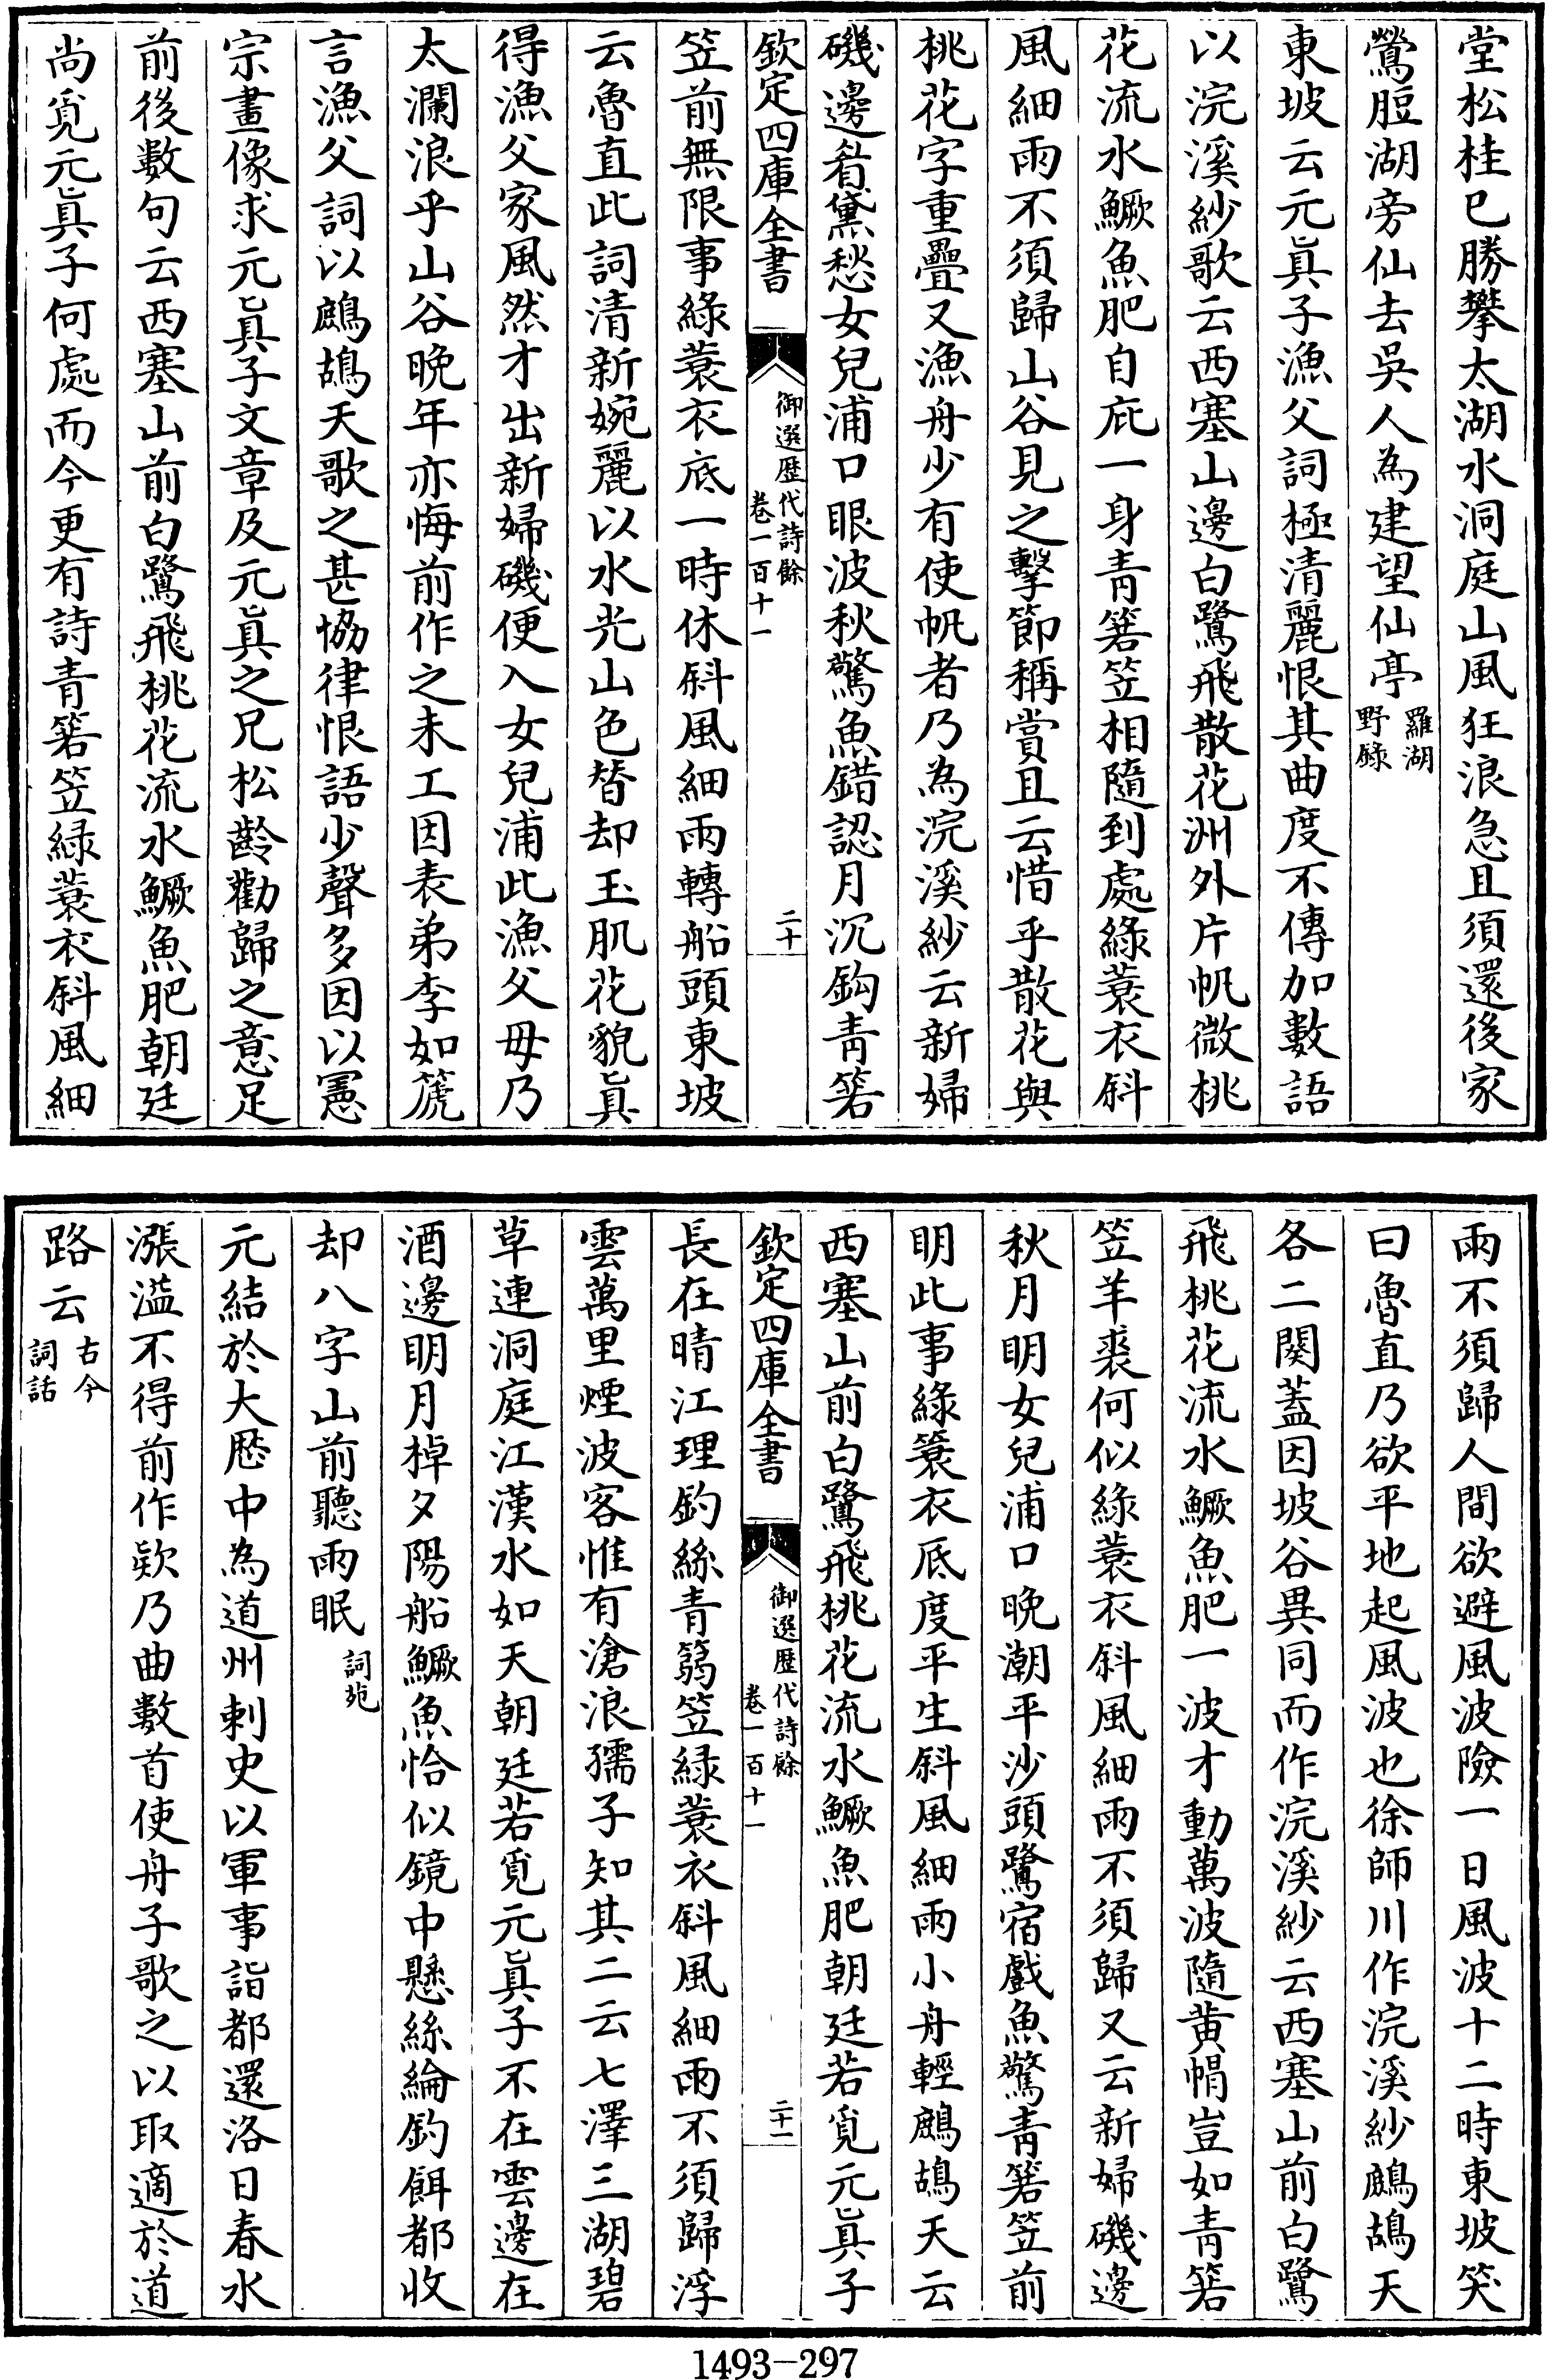 堂松桂已勝攀太湖水洞庭山風狂浪急且須還後家
鶯脰湖旁仙去吳人為建望仙亭羅湖野錄
東坡云元眞子漁父詞極清麗恨其曲度不傳加數語
以浣溪紗歌云西塞山邊白鷺飛散花洲外片帆微桃
花流水鱖魚肥自庇一身青箬笠相隨到處綠蓑衣斜
風細雨不須歸山谷見之擊節稱賞且云惜乎散花與
桃花字重疊又漁舟少有使帆者乃為浣溪紗云新婦
磯邊眉黛愁女兒浦口眼波秋驚魚錯認月沉鈎青箬
欽定四庫全書 御選歷代詩餘 卷一百十一 二十
笠前無限事綠蓑衣底一時休斜風細雨轉船頭東坡
云魯直此詞清新婉麗以水光山色替却玉肌花貌眞
得漁父家風然才出新婦磯便入女兒浦此漁父毋乃
太瀾浪乎山谷晚年亦悔前作之未工因表弟李如篪
言漁父詞以鷓鴣天歌之甚協律恨語少聲多因以憲
宗畫像求元眞子文章及元眞之兄松齡勸歸之意足
前後數句云西塞山前白鷺飛桃花流水鱖魚肥朝廷
尚覓元眞子何處而今更有詩青箬笠綠蓑衣斜風細
雨不須歸人間欲避風波險一日風波十二時東坡笑
曰魯直乃欲平地起風波也徐師川作浣溪紗鷓鴣天
各二闋蓋因坡谷異同而作浣溪紗云西塞山前白鷺
飛桃花流水鱖魚肥一波才動萬波隨黃帽豈如青箬
笠羊裘何似綠蓑衣斜風細雨不須歸又云新婦磯邊
秋月明女兒浦口晚潮平沙頭鷺宿戲魚驚青箬笠前
明此事綠簑衣底度平生斜風細雨小舟輕鷓鴣天云
西塞山前白鷺飛桃花流水鱖魚肥朝廷若覓元眞子
欽定四庫全書 御選歷代詩餘 卷一百十一 二十一
長在晴江理釣絲青篛笠綠蓑衣斜風細雨不須歸浮
雲萬里煙波客惟有滄浪孺子知其二云七澤三湖碧
草連洞庭江漢水如天朝廷若覓元眞子不在雲邊在
酒邊明月棹夕陽船鱖魚恰似鏡中懸絲綸釣餌都收
却八字山前聽雨眠詞苑
元結於大厯中為道州刺史以軍事詣都還洛日春水
漲溢不得前作欵乃曲數首使舟子歌之以取適於道
路云古今詞話
1493—297